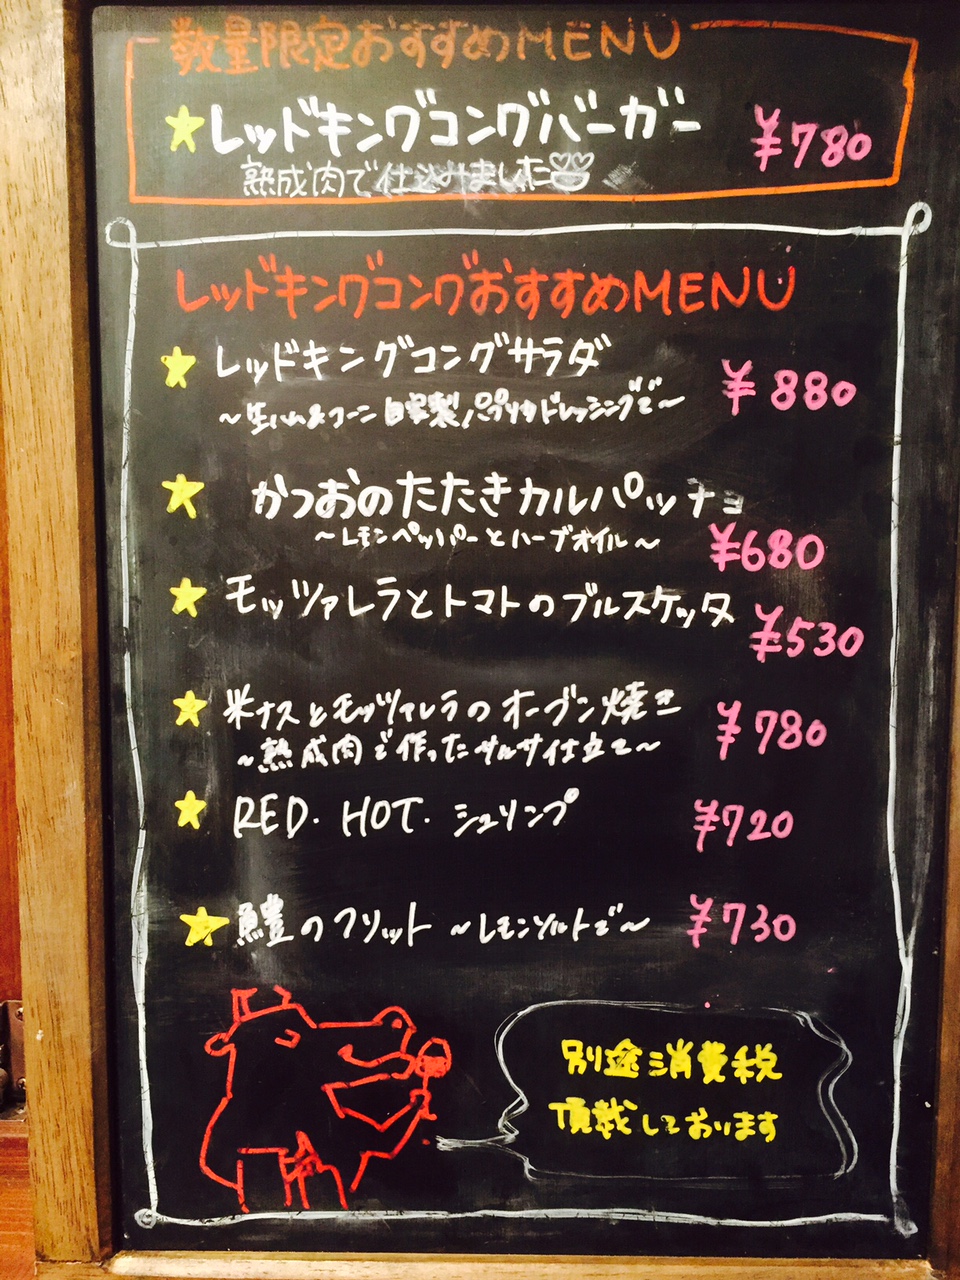 数量限定おすすめMENU
レッドキングコングバーガー ¥780
熟成肉で仕込みました
レッドキングコングおすすめMENU
レッドキングコングサラダ ¥880
~生ハム&コーン 自家製パプリカドレッシングで~
かつおのたたきカルパッチョ
~レモンペッパーとハーブオイル~ ¥680
モッツァレラとトマトのブルスケッタ ¥530
米ナスとモッツァレラのオーブン焼き ¥780
~熟成肉で作ったサルサ仕立て~
RED. HOT. シュリンプ ¥720
鱧のフリット ~レモンソルトで~ ¥730
別途消費税
頂戴しております